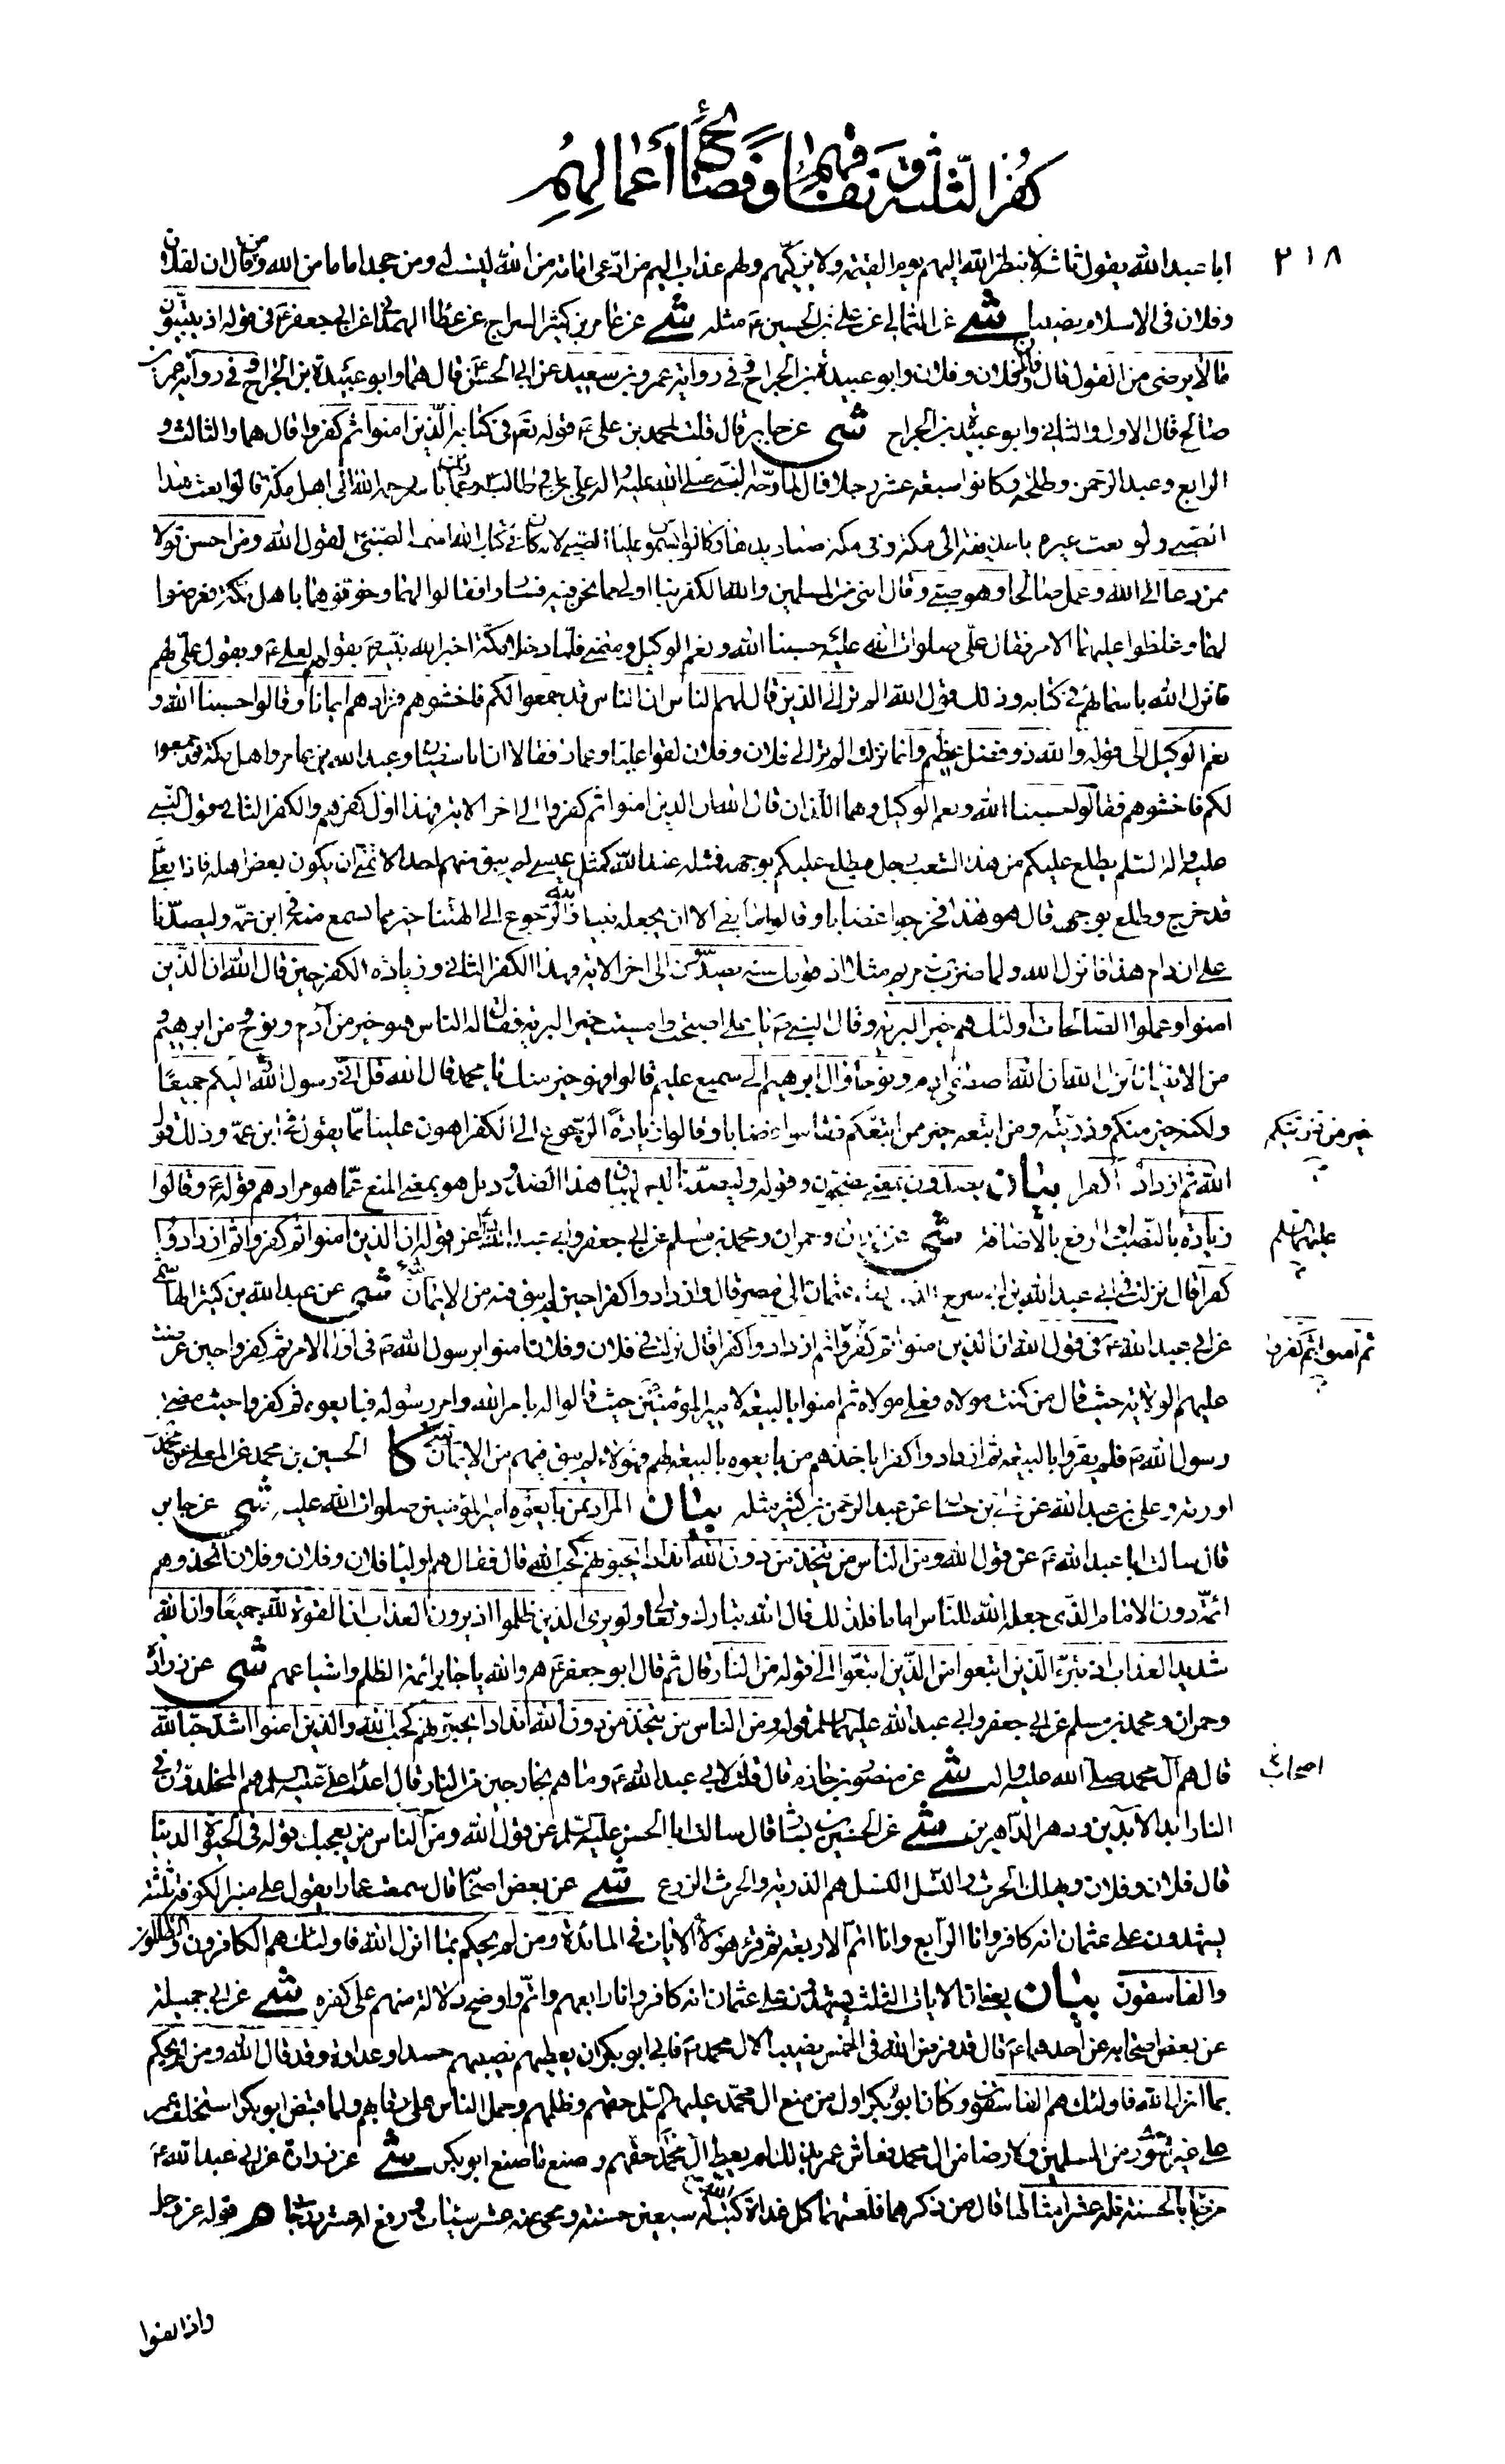 كفر الثلثة ونفاقهم وفضائح أعمالهم
٢١٨
ابا عبد الله يقول ثلثة لا ينظر الله اليهم يوم القيمة ولا يزكيهم ولهم عذاب اليم من ادعى امامة من الله ليست له ومن جحد اماما من الله ومن قال ان لفلان
وفلان فى الاسلام نصيبا شى عن الثمالى عن على بن الحسين ع مثله شى عن عامر بن كثير السراج عن عطا الهمدانى عن ابى جعفر ع فى قوله اذ يبيتون
ما لا يرضى من القول قال فلان وفلان وابو عبيدة بن الجراح وفى رواية عمرو بن سعيد عن ابى الحسن ع قال هما وابو عبيدة بن الجراح وفى رواية عمر بن
صالح قال الاول والثانى وابو عبيدة بن الجراح شى عن جابر قال قلت لمحمد بن على ع قوله تعم فى كتابه الذين امنوا ثم كفروا قال هما والثالث و
الرابع وعبد الرحمن وطلحة وكانوا سبعة عشر رجلا قال لما وجه النبى صلى الله عليه واله على بن ابى طالب ع وعمار بن ياسر رحمه الله الى اهل مكة قالوا بعث هذا
الصبى ولو بعث غيره يا حذيفة الى مكة وفى مكة صناديدها وكانوا يسمون عليا الصبى لانه كان فى كتاب الله اسمه الصبى لقول الله ومن احسن قولا
ممن دعا الى الله وعمل صالحا وهو صبى وقال اننى من المسلمين والله الكفر بنا اولى مما نحن فيه فساروا فقالوا لهما وخوفوهما باهل مكة فعرضوا
لهما وغلظوا عليهما الامر فقال على صلوات الله عليه حسبنا الله ونعم الوكيل ومضى فلما دخلا مكة اخبر الله نبيه بقولهم لعلى ع وبقول على لهم
فانزل الله باسمائهم فى كتابه وذلك قول الله الم تر الى الذين قال لهم الناس ان الناس قد جمعوا لكم فاخشوهم فزادهم ايمانا وقالوا حسبنا الله و
نعم الوكيل الى قوله والله ذو فضل عظيم وانما نزلت الم تر الى فلان وفلان لقوا عليا وعمارا فقالا ان ابا سفيان وعبد الله بن عامر واهل مكة قد جمعوا
لكم فاخشوهم فقالوا حسبنا الله ونعم الوكيل وهما اللذان قال الله ان الذين امنوا ثم كفروا الى اخر الاية فهذا اول كفرهم والكفر الثانى قول النبى
عليه واله السلم يطلع عليكم من هذا الشعب رجل فيطلع عليكم بوجهه فمثله عند الله كمثل عيسى لم يبق منهم احد الا تمنى ان يكون بعض اهله فاذا بعلى
قد خرج وطلع بوجهه قال هو هذا فخرجوا غضابا وقالوا ما بقى الا ان يجعله نبيا والله الرجوع الى الهتنا خير مما نسمع منه فى ابن عمه وليصدنا
على ان دام هذا فانزل الله ولما ضرب ابن مريم مثلا اذا قومك منه يصدون الى اخر الاية فهذا الكفر الثانى وزيادة الكفر حين قال الله ان الذين
امنوا وعملوا الصالحات اولئك هم خير البرية وقال النبى ص يا على اصبحت وامسيت خير البرية فقال له الناس هو خير من آدم ونوح ومن ابرهيم و
من الانبياء فانزل الله ان الله اصطفى ادم ونوحا وال ابرهيم الى سميع عليم قالوا فهو خير منك يا محمد قال الله قل انى رسول الله اليكم جميعا
ولكنه خير منكم وذريته خير من ذريتكم ومن اتبعه خير ممن اتبعكم فقاموا غضابا وقالوا زيادة الرجوع الى الكفر اهون علينا مما يقول فى ابن عمه وذلك قول
الله ثم ازدادوا كفرا بيان يصدون بمعنى يضجون وقوله وليصدنا ليس لبيان هذا الصدود بل هو بمعنى المنع عما هو مرادهم قوله ع وقالوا
زيادة بالنصب او الرفع بالاضافة شى عن زرارة وحمران ومحمد بن مسلم عن ابى جعفر وابى عبد الله عليهما السلم عن قوله ان الذين امنوا ثم كفروا ثم ازدادوا
كفرا قال نزلت فى ابى عبد الله بن ابى سرح الذى بعثه عثمان الى مصر قال وازدادوا كفرا حين لم يبق فيه من الايمان شىء شى عن عبد الله بن كثير الهاشمى
عن ابى عبد الله ع فى قول الله ان الذين امنوا ثم كفروا ثم امنوا ثم كفروا ثم ازدادوا كفرا قال نزلت فى فلان وفلان امنوا برسول الله ص فى اول الامر ثم كفروا حين عرضت
عليهم الولاية حيث قال من كنت مولاه فعلى مولاه ثم امنوا بالبيعة لامير المؤمنين حيث قالوا له بامر الله وامر رسوله فبايعوه ثم كفروا حيث مضى
رسول الله ص فلم يقروا بالبيعة ثم ازدادوا كفرا باخذهم من بايعوه بالبيعة لهم فهؤلاء لم يبق فيهم من الايمان شىء كا الحسين بن محمد عن المعلى عن محمد بن
اورمة وعلى بن عبد الله عن على بن حسان عن عبد الرحمن بن كثير مثله بيان المراد بمن بايعوه امير المؤمنين صلوات الله عليه شى عن جابر
قال سالت ابا عبد الله ع عن قول الله ومن الناس من يتخذ من دون الله اندادا يحبونهم كحب الله قال فقال هم اولياء فلان وفلان وفلان اتخذوهم
ائمة دون الامام الذى جعله الله للناس اماما فلذلك قال الله تبارك وتعالى ولو يرى الذين ظلموا اذ يرون العذاب ان القوة لله جميعا وان الله
شديد العذاب اذ تبرء الذين اتبعوا من الذين اتبعوا الى قوله من النار قال ثم قال ابو جعفر ع هم والله يا جابر ائمة الظلم واشياعهم شى عن زرارة
وحمران ومحمد بن مسلم عن ابى جعفر وابى عبد الله عليهما السلم قوله ومن الناس من يتخذ من دون الله اندادا يحبونهم كحب الله والذين امنوا اشد حبا لله
قال هم آل محمد صلى الله عليه واله شى عن منصور بن حازم قال قلت لابى عبد الله ع وما هم بخارجين من النار قال اعداء على عليه السلم هم المخلدون فى
اصحاب
النار ابد الآبدين ودهر الداهرين شى عن الحسين بن بشار قال سالت ابا الحسن عليه السلم عن قول الله ومن الناس من يعجبك قوله فى الحيوة الدنيا
قال فلان وفلان ويهلك الحرث والنسل النسل هم الذرية والحرث الزرع شى عن بعض اصحابنا قال سمعت عمارا يقول على منبر الكوفة ثلثة
يشهدون على عثمان انه كافر وانا الرابع وانا اتم الاربعة ثم قرء هؤلاء الايات فى المائدة ومن لم يحكم بما انزل الله فاولئك هم الكافرون والظالمون
والفاسقون بيان يعنى ان الايات الثلث يشهدون على عثمان انه كافر وانا رابعهم واتم واوضح دلالة منهم على كفره شى عن ابى جميلة
عن بعض اصحابه عن احدهما ع قال قد فرض الله فى الخمس نصيبا لال محمد ص فابى ابو بكر ان يعطيهم نصيبهم حسدا وعداوة وقد قال الله ومن لم يحكم
بما انزل الله فاولئك هم الفاسقون وكان ابو بكر اول من منع ال محمد عليهم السلم حقهم وظلمهم وحمل الناس على رقابهم ولما قبض ابو بكر استخلف عمر
على غير شورى من المسلمين ولا رضا من ال محمد فعاش عمر بذلك لم يعط ال محمد حقهم وصنع ما صنع ابو بكر شى عن زرارة عن ابى عبد الله ع
من جاء بالحسنة فله عشر امثالها قال من ذكرهما فلعنهما كل غداة كتب الله له سبعين حسنة ومحى عنه عشر سيئات ورفع له عشر درجات هر قوله عز وجل
واذا لقوا